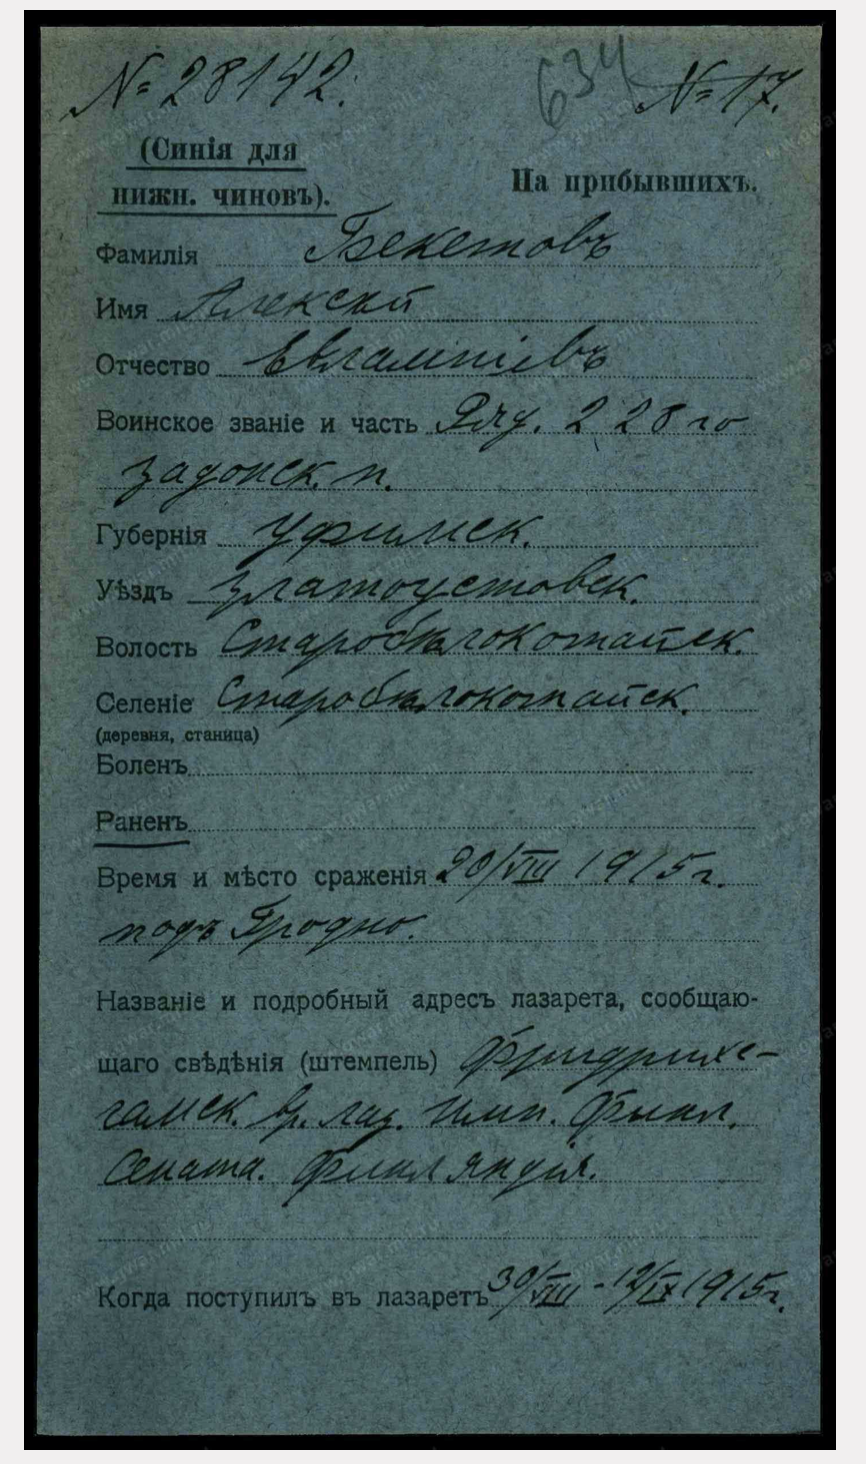 № 28142. 634 № 17.
(Синія для
нижн. чиновъ).
На прибывшихъ.
Фамилія Бекетовъ
Имя Алексѣй
Отчество Евлампіевъ
Воинское званіе и часть Ряд. 228 го
Задонск. п.
Губернія Уфимск.
Уѣздъ Златоустовск.
Волость Старобѣлокотайск.
Селеніе Старобѣлокотайск.
(деревня, станица)
Боленъ
Раненъ
Время и мѣсто сраженія 20/VIII 1915 г.
подъ Гродно.
Названіе и подробный адресъ лазарета, сообщаю-
щаго свѣдѣнія (штемпель) Фридрихс-
гамск. вр. лаз. Имп. Финл.
Сената. Финляндія.
Когда поступилъ въ лазаретъ 30/VIII - 12/IX 1915 г.